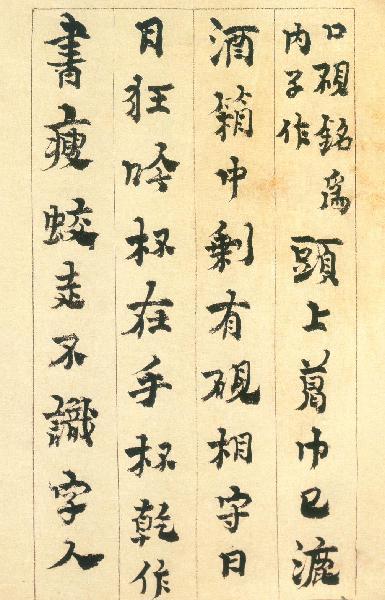 口硯銘為
内子作
頭上葛巾已漉
酒箱中剩有硯相守日
日狂吟杯在手杯乾作
書瘦蛟走不識字人